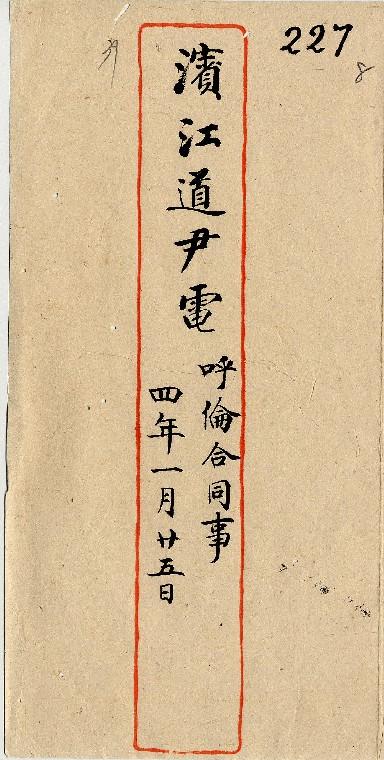 227
8
濱江道尹電
呼倫合同事
四年一月廿五日